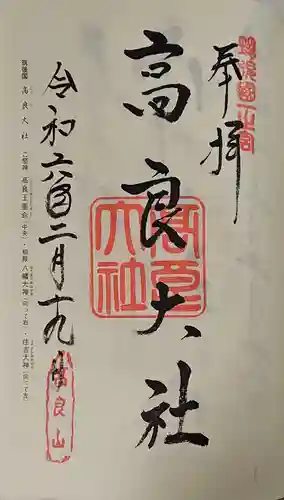 奉拝
筑後國一之宮
高良大社
高良大社
令和六年二月十九日
高良山
筑後國 高良大社 ご祭神 高良玉垂命(中央)・相殿 八幡大神(向って右)・住吉大神(向って左)